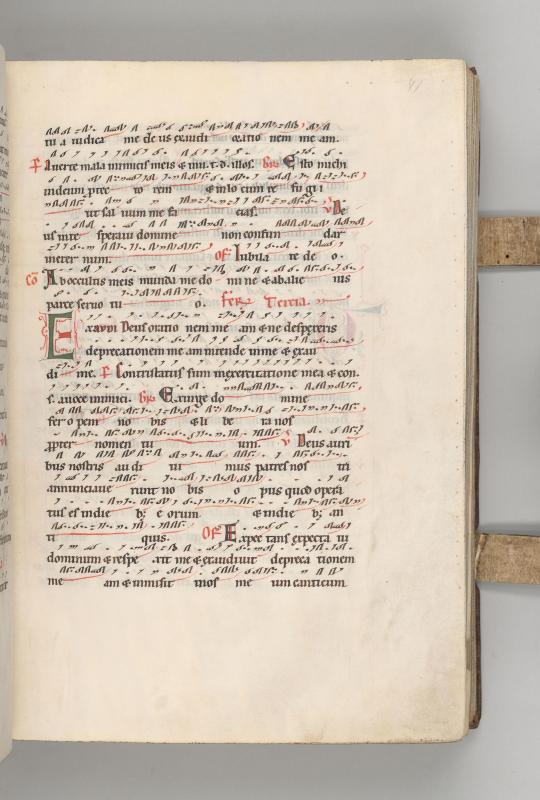 tu a iudica me de us exaudi oratio nem me am.
Auerte mala inimicis meis & in u. t. d. illos. Esto michi
indeum prote cto rem & inlo cum re fu gi i
ut sal uum me fa cias. De
us inte speraui domine non confun dar
ineter num. Of Iubila te de o.
Co Aboccultis meis munda me do mi ne & abalie nis
parce seruo tu o. Fer Tercia
Exaudi Deus oratio nem me am & ne despexeris
deprecationem me am intende inme & exau
di me. Contristatus sum inexercitatione mea & con.
s. auoce inimici. Exurge do mine
fer o pem no bis & li be ra nos
propter nomen tu um. V Deus auri
bus nostris au di ui mus patres nos tri
annunciaue runt no bis o pus quod opera
tus es indie b; e orum & indie b; an
ti quis. Of Expec tans expecta ui
dominum & respe xit me & exaudiuit depreca tionem
me am & inmisit inos me um canticum